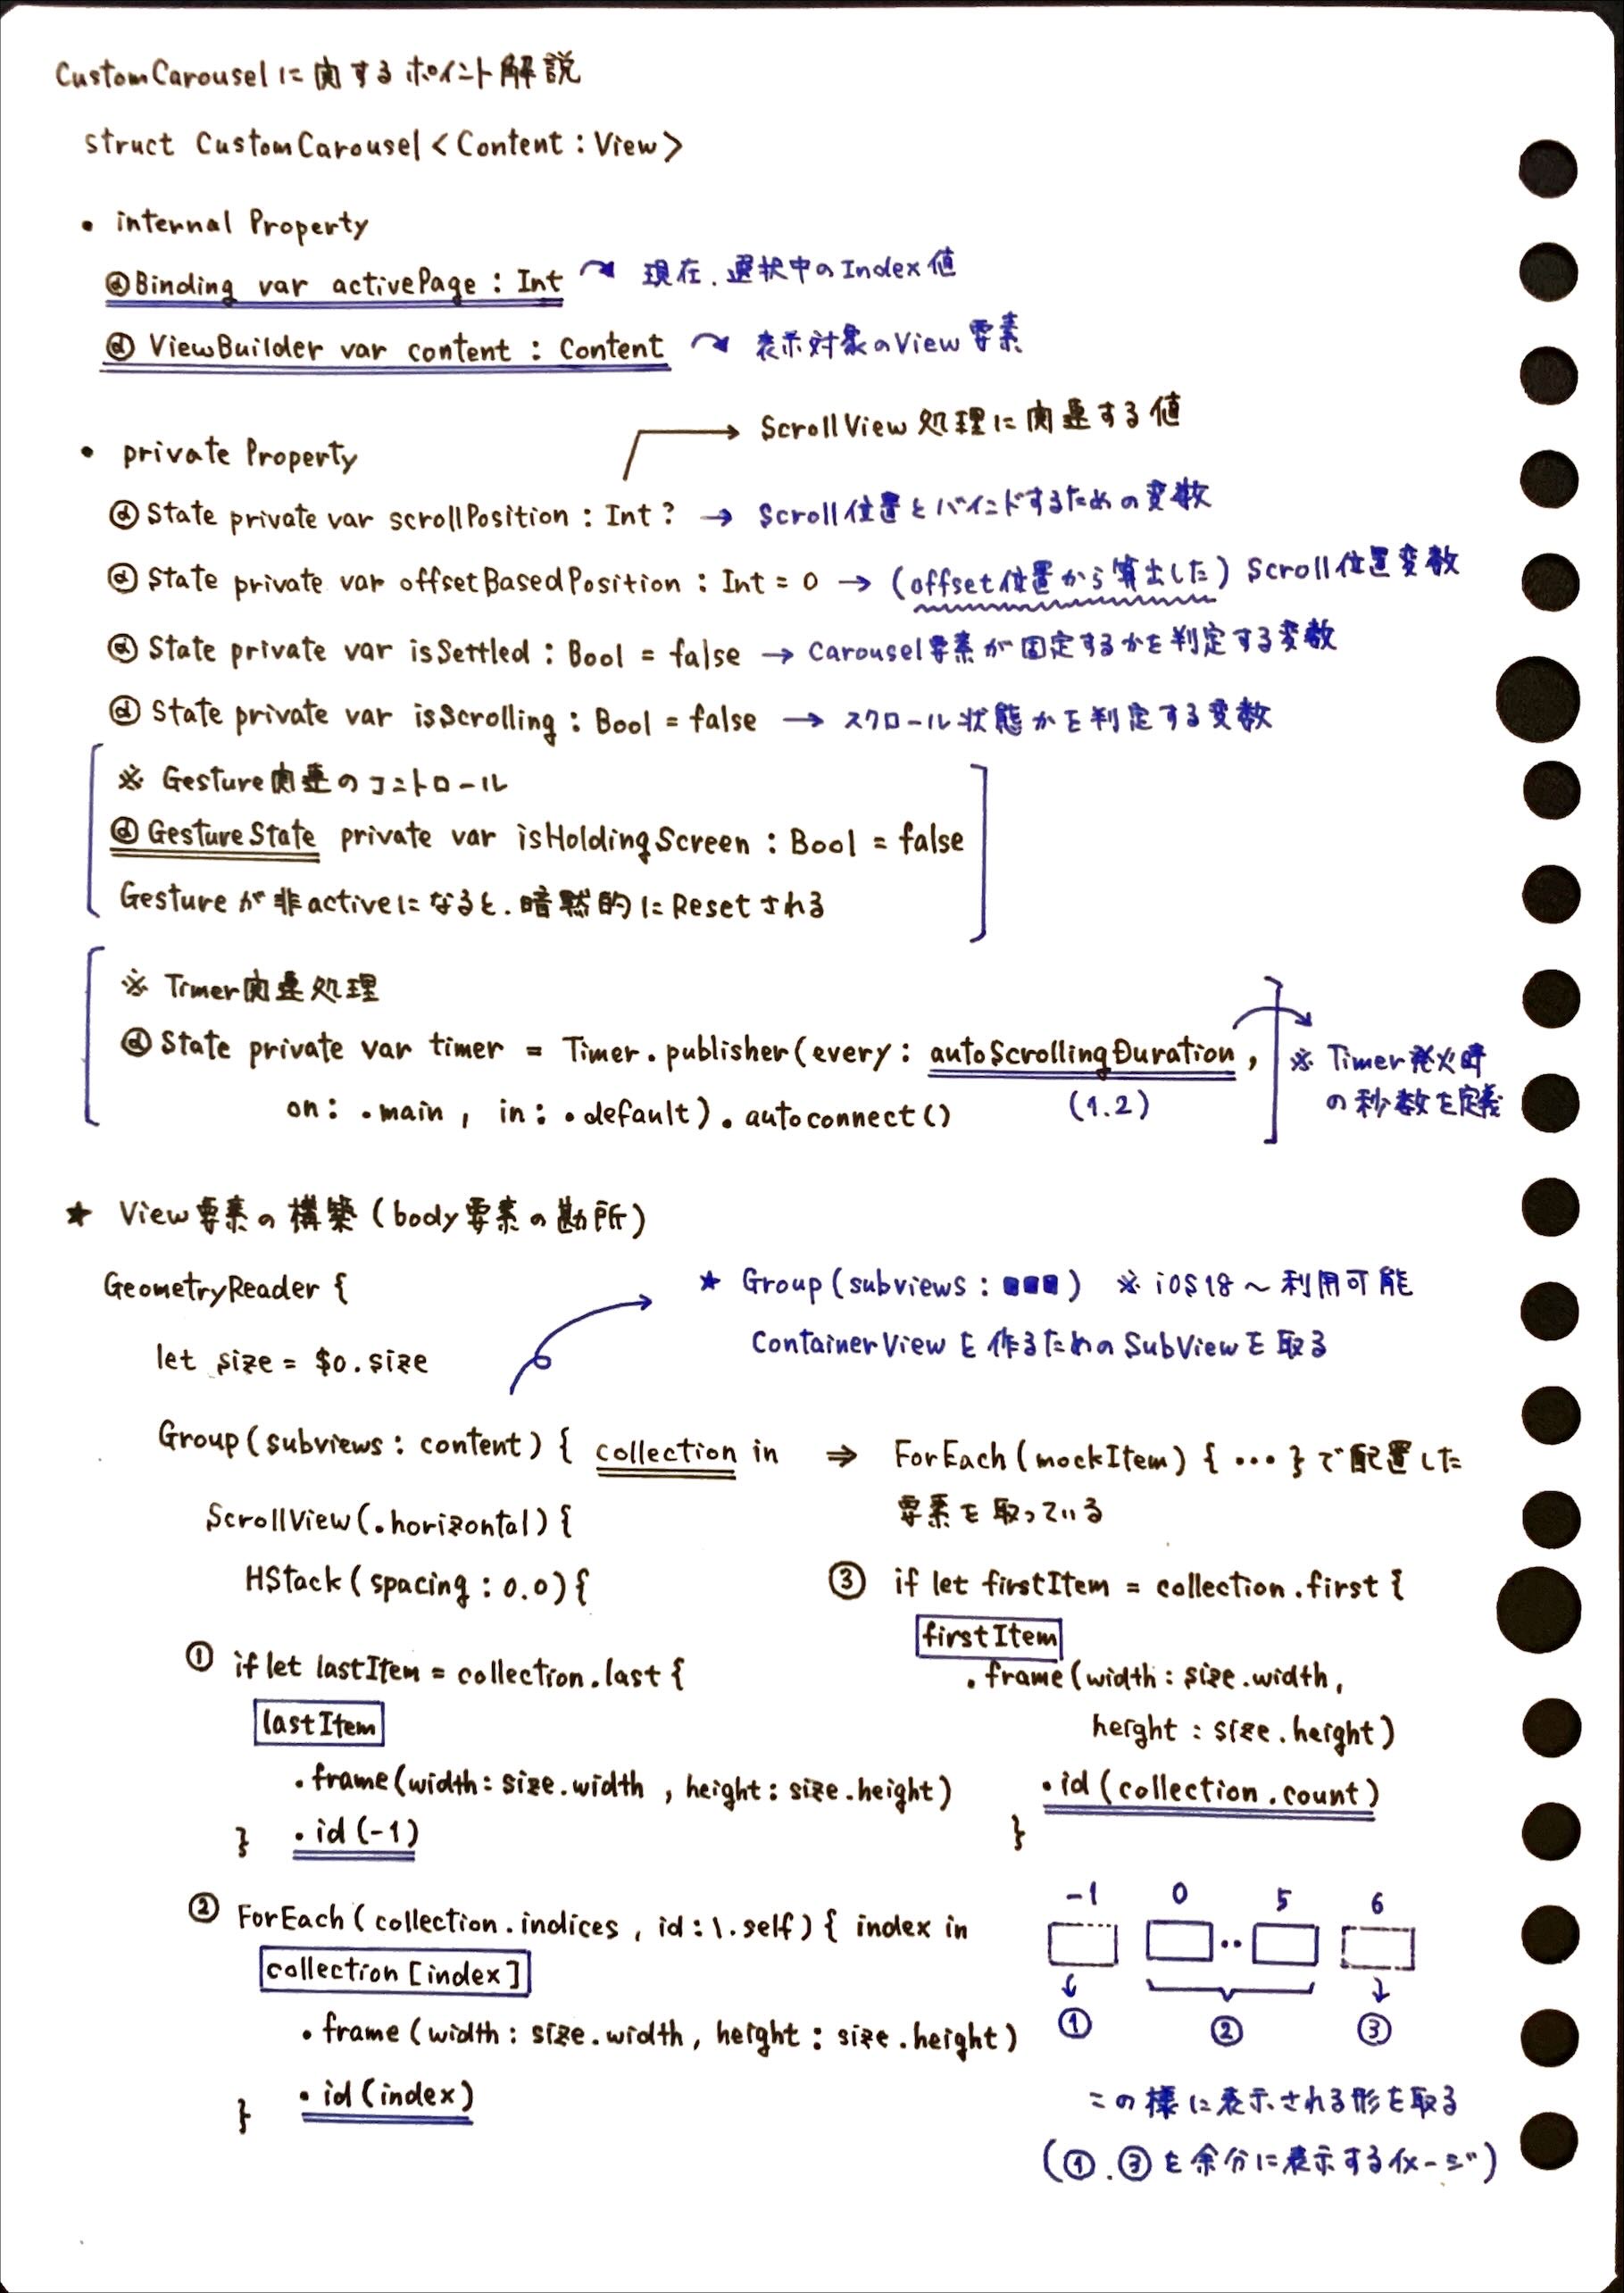 CustomCarouselに関するポイント解説
struct CustomCarousel<Content:View>
• internal Property
@Binding var activePage : Int 現在.選択中のIndex値
@ViewBuilder var content : Content 表示対象のView要素
ScrollView処理に関連する値
• private Property
@State private var scrollPosition : Int? → Scroll位置とバインドするための変数
@State private var offsetBasedPosition : Int = 0 → (offset位置から算出した) Scroll位置変数
@State private var isSettled : Bool = false → Carousel要素が固定するかを判定する変数
@State private var isScrolling : Bool = false → スクロール状態かを判定する変数
※ Gesture関連のコントロール
@GestureState private var isHoldingScreen : Bool = false
Gestureが非activeになると.暗黙的にResetされる
※ Timer関連処理
@State private var timer = Timer.publisher(every: autoScrollingDuration,
(1.2)
on: .main, in: .default).autoconnect()
※ Timer発火時
の秒数を定義
★ View要素の構築(body要素の勘所)
GeometryReader {
let size = $0.size
★ Group(subviews: ■■■) ※ iOS18〜利用可能
ContainerViewを作るためのSubViewを取る
Group(subviews: content) { collection in ⇒ ForEach(mockItem) { ••• }で配置した
要素を取っている
ScrollView(.horizontal) {
HStack(spacing: 0.0) {
① if let lastItem = collection.last {
lastItem
.frame(width: size.width, height: size.height)
} .id(-1)
② ForEach(collection.indices, id: \.self) { index in
collection[index]
.frame(width: size.width, height: size.height)
} .id(index)
③ if let firstItem = collection.first {
firstItem
.frame(width: size.width,
height: size.height)
.id(collection.count)
}
-1 0 5 6
① ② ③
この様に表示される形を取る
(①.③を余分に表示するイメージ)